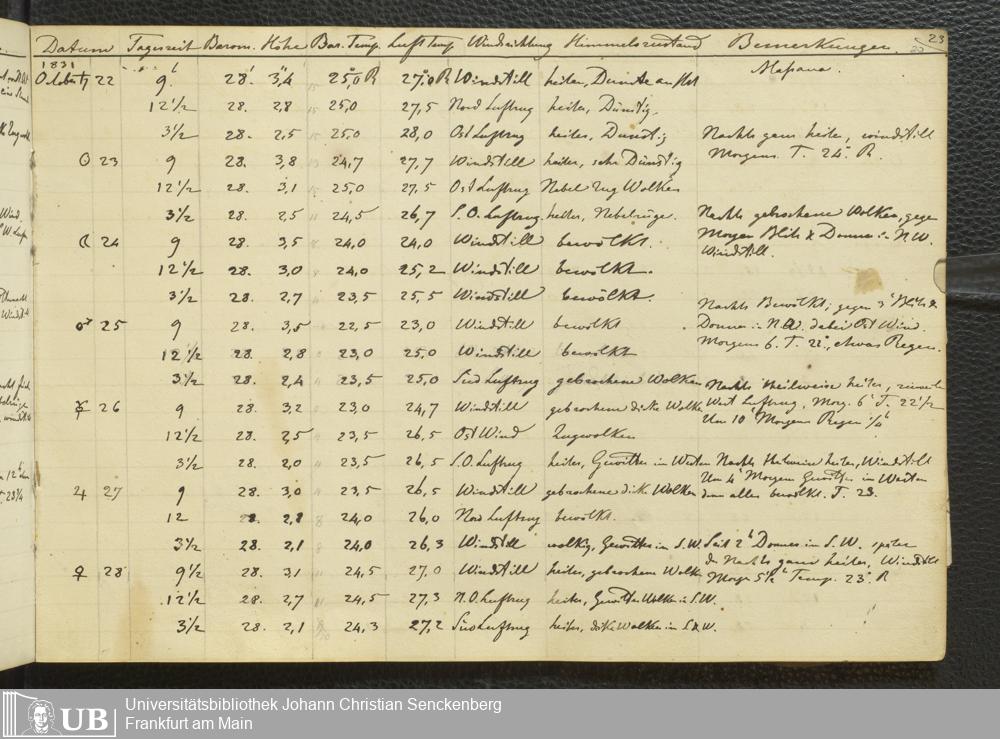 Datum Tageszeit Barom. Höhe Bar. Temp. Luft Temp Windrichtung Himmelszustand Bemerkungen. 23
1831
October ♄ 22 9h 28' 3",4 25,0 R 27,0 R Windstill heiter, Dünste Massaua.
12 1/2 28. 2,8 25,0 27,5 Nord Luftzug heiter, Dünstig.
3 1/2 28. 2,5 25,0 28,0 Ost Luftzug heiter, Dunstig Nachts ganz heiter, windstill
☉ 23 9 28. 3,8 24,7 27,7 Windstill heiter, sehr Dünstig Morgens. T. 24° R.
12 1/2 28. 3,1 25,0 27,5 Ost Luftzug Nebel Zug Wolken
3 1/2 28. 2,5 24,5 26,7 S.O. Luftzug. heiter, Nebelzüge. Nachts gebrochene Wolken, gegen
☾ 24 9 28. 3,5 24,0 24,0 Windstill bewölkt. Morgen Blitz & Donner in N.W.
Windstill.
12 1/2 28. 3,0 24,0 25,2 Windstill bewölkt.
3 1/2 28. 2,7 23,5 25,5 Windstill bewölkt. Nachts Bewölkt; gegen 3h Blitz &
♂ 25 9 28. 3,5 22,5 23,0 Windstill bewölkt Donner in N.W. dabei Ost Wind.
12 1/2 28. 2,8 23,0 25,0 Windstill bewölkt Morgens 6. T. 22°, etwas Regen.
3 1/2 28. 2,4 23,5 25,0 Süd Luftzug gebrochene Wolken Nachts theilweise heiter,
☿ 26 9 28. 3,2 23,0 24,7 Windstill gebrochene dicke Wolken West Luftzug, Morg. 6h T. 22 1/2
12 1/2 28. 2,5 23,5 26,5 Ost Wind Zugwolken Um 10h Morgens Regen
3 1/2 28. 2,0 23,5 26,5 S.O. Luftzug heiter, Gewitter im Westen Nachts theilweise heiter, Windstill
♃ 27 9 28. 3,0 23,5 26,5 Windstill gebrochene dicke Wolken Um 4h Morgens Gewitter im Westen
dann alles bewölkt. T. 23.
12 28. 2,8 24,0 26,0 Nord Luftzug bewölkt.
3 1/2 28. 2,1 24,0 26,3 Windstill wolkig, Gewitter im S.W. Seit 2h Donner im S.W. später
♀ 28 9 1/2 28. 3,1 24,5 27,0 Windstill heiter, gebrochene Wolken des Nachts ganz heiter, Windstill
12 1/2 28. 2,7 24,5 27,3 N.O. Luftzug heiter, Gewitter Wolke in S.W. Morgs 5 1/2h Temp. 23° R
3 1/2 28. 2,1 24,3 27,2 Süd Luftzug heiter, dicke Wolken im S & W.
UB
Universitätsbibliothek Johann Christian Senckenberg
Frankfurt am Main